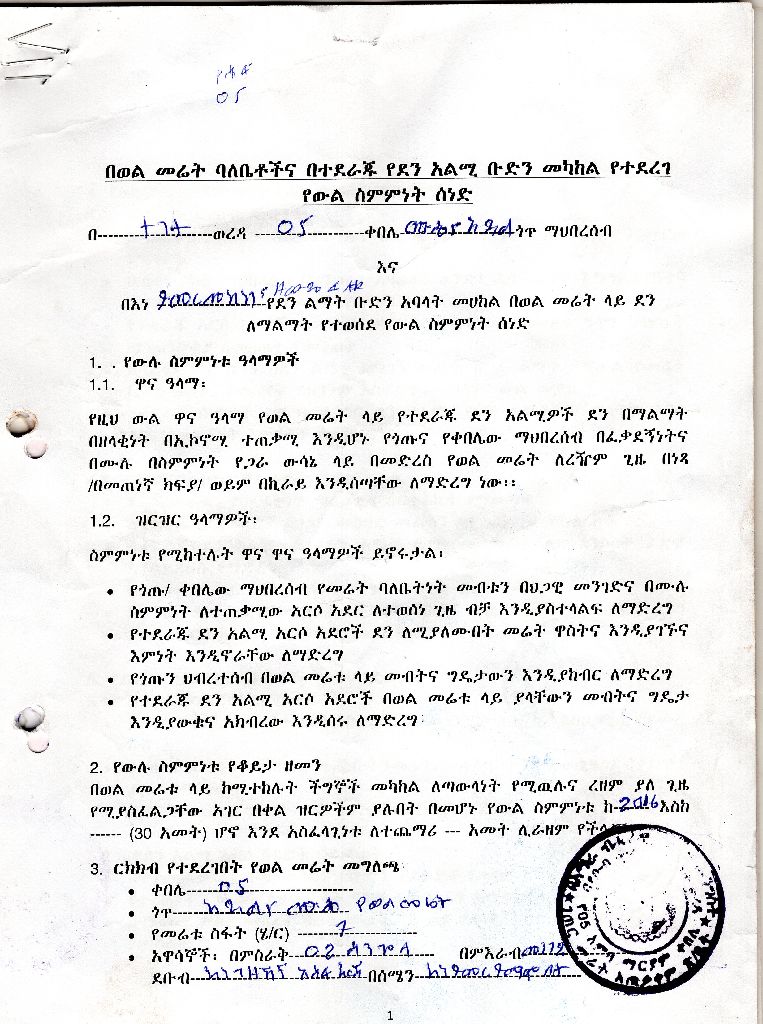 05
በወል መሬት ባለቤቶችና በተደራጁ የደን አልሚ ቡድን መካከል የተደረገ
የውል ስምምነት ሰነድ
በ-----------------ወረዳ ------05------------ቀበሌ ጎጥ ማህበረሰብ
እና
በእነ የደን ልማት ቡድን አባላት መሀከል በወል መሬት ላይ ደን
ለማልማት የተወሰደ የውል ስምምነት ሰነድ
1. . የውሉ ስምምነቱ ዓላማዎች
1.1. ዋና ዓላማ፡
የዚህ ውል ዋና ዓላማ የወል መሬት ላይ የተደራጁ ደን አልሚዎች ደን በማልማት
በዘላቂነት በኢኮኖሚ ተጠቃሚ እንዲሆኑ የጎጡና የቀበሌው ማህበረሰብ በፈቃደኝነትና
በሙሉ በስምምነት የጋራ ውሳኔ ላይ በመድረስ የወል መሬት ለረዥም ጊዜ በነጻ
/በመጠነኛ ክፍያ/ ወይም በኪራይ እንዲሰጣቸው ለማድረግ ነው፡፡
1.2. ዝርዝር ዓላማዎች፡
ስምምነቱ የሚከተሉት ዋና ዋና ዓላማዎች ይኖሩታል፡
• የጎጡ/ ቀበሌው ማህበረሰብ የመሬት ባለቤትነት መብቱን በህጋዊ መንገድና በሙሉ
ስምምነት ለተጠቃሚው አርሶ አደር ለተወሰነ ጊዜ ብቻ እንዲያስተላልፍ ለማድረግ
• የተደራጁ ደን አልሚ አርሶ አደሮች ደን ለሚያለሙበት መሬት ዋስትና እንዲያገኙና
እምነት እንዲኖራቸው ለማድረግ
• የጎጡን ህብረተሰብ በወል መሬቱ ላይ መብትና ግዴታውን እንዲያከብር ለማድረግ
• የተደራጁ ደን አልሚ አርሶ አደሮች በወል መሬቱ ላይ ያላቸውን መብትና ግዴታ
እንዲያውቁና አክብረው እንዲሰሩ ለማድረግ
2. የውሉ ስምምነቱ የቆይታ ዘመን
በወል መሬቱ ላይ ከሚተከሉት ችግኞች መካከል ለጣውላነት የሚዉሉና ረዘም ያለ ጊዜ
የሚያስፈልጋቸው አገር በቀል ዝርዎችም ያሉበት በመሆኑ የውል ስምምነቱ ከ-2016እስከ
------ (30 አመት) ሆኖ እንደ አስፈላጊነቱ ለተጨማሪ --- አመት ሊራዘም የችላ
3. ርክክብ የተደረገበት የወል መሬት መግለጫ
• ቀበሌ------05------------------
• ጎጥ-----
• የመሬቱ ስፋት (ሄ/ር) -------7---------
• አዋሳኞች፡ በምስራቅ በምእራብ
ደቡብ በሰሜን
1